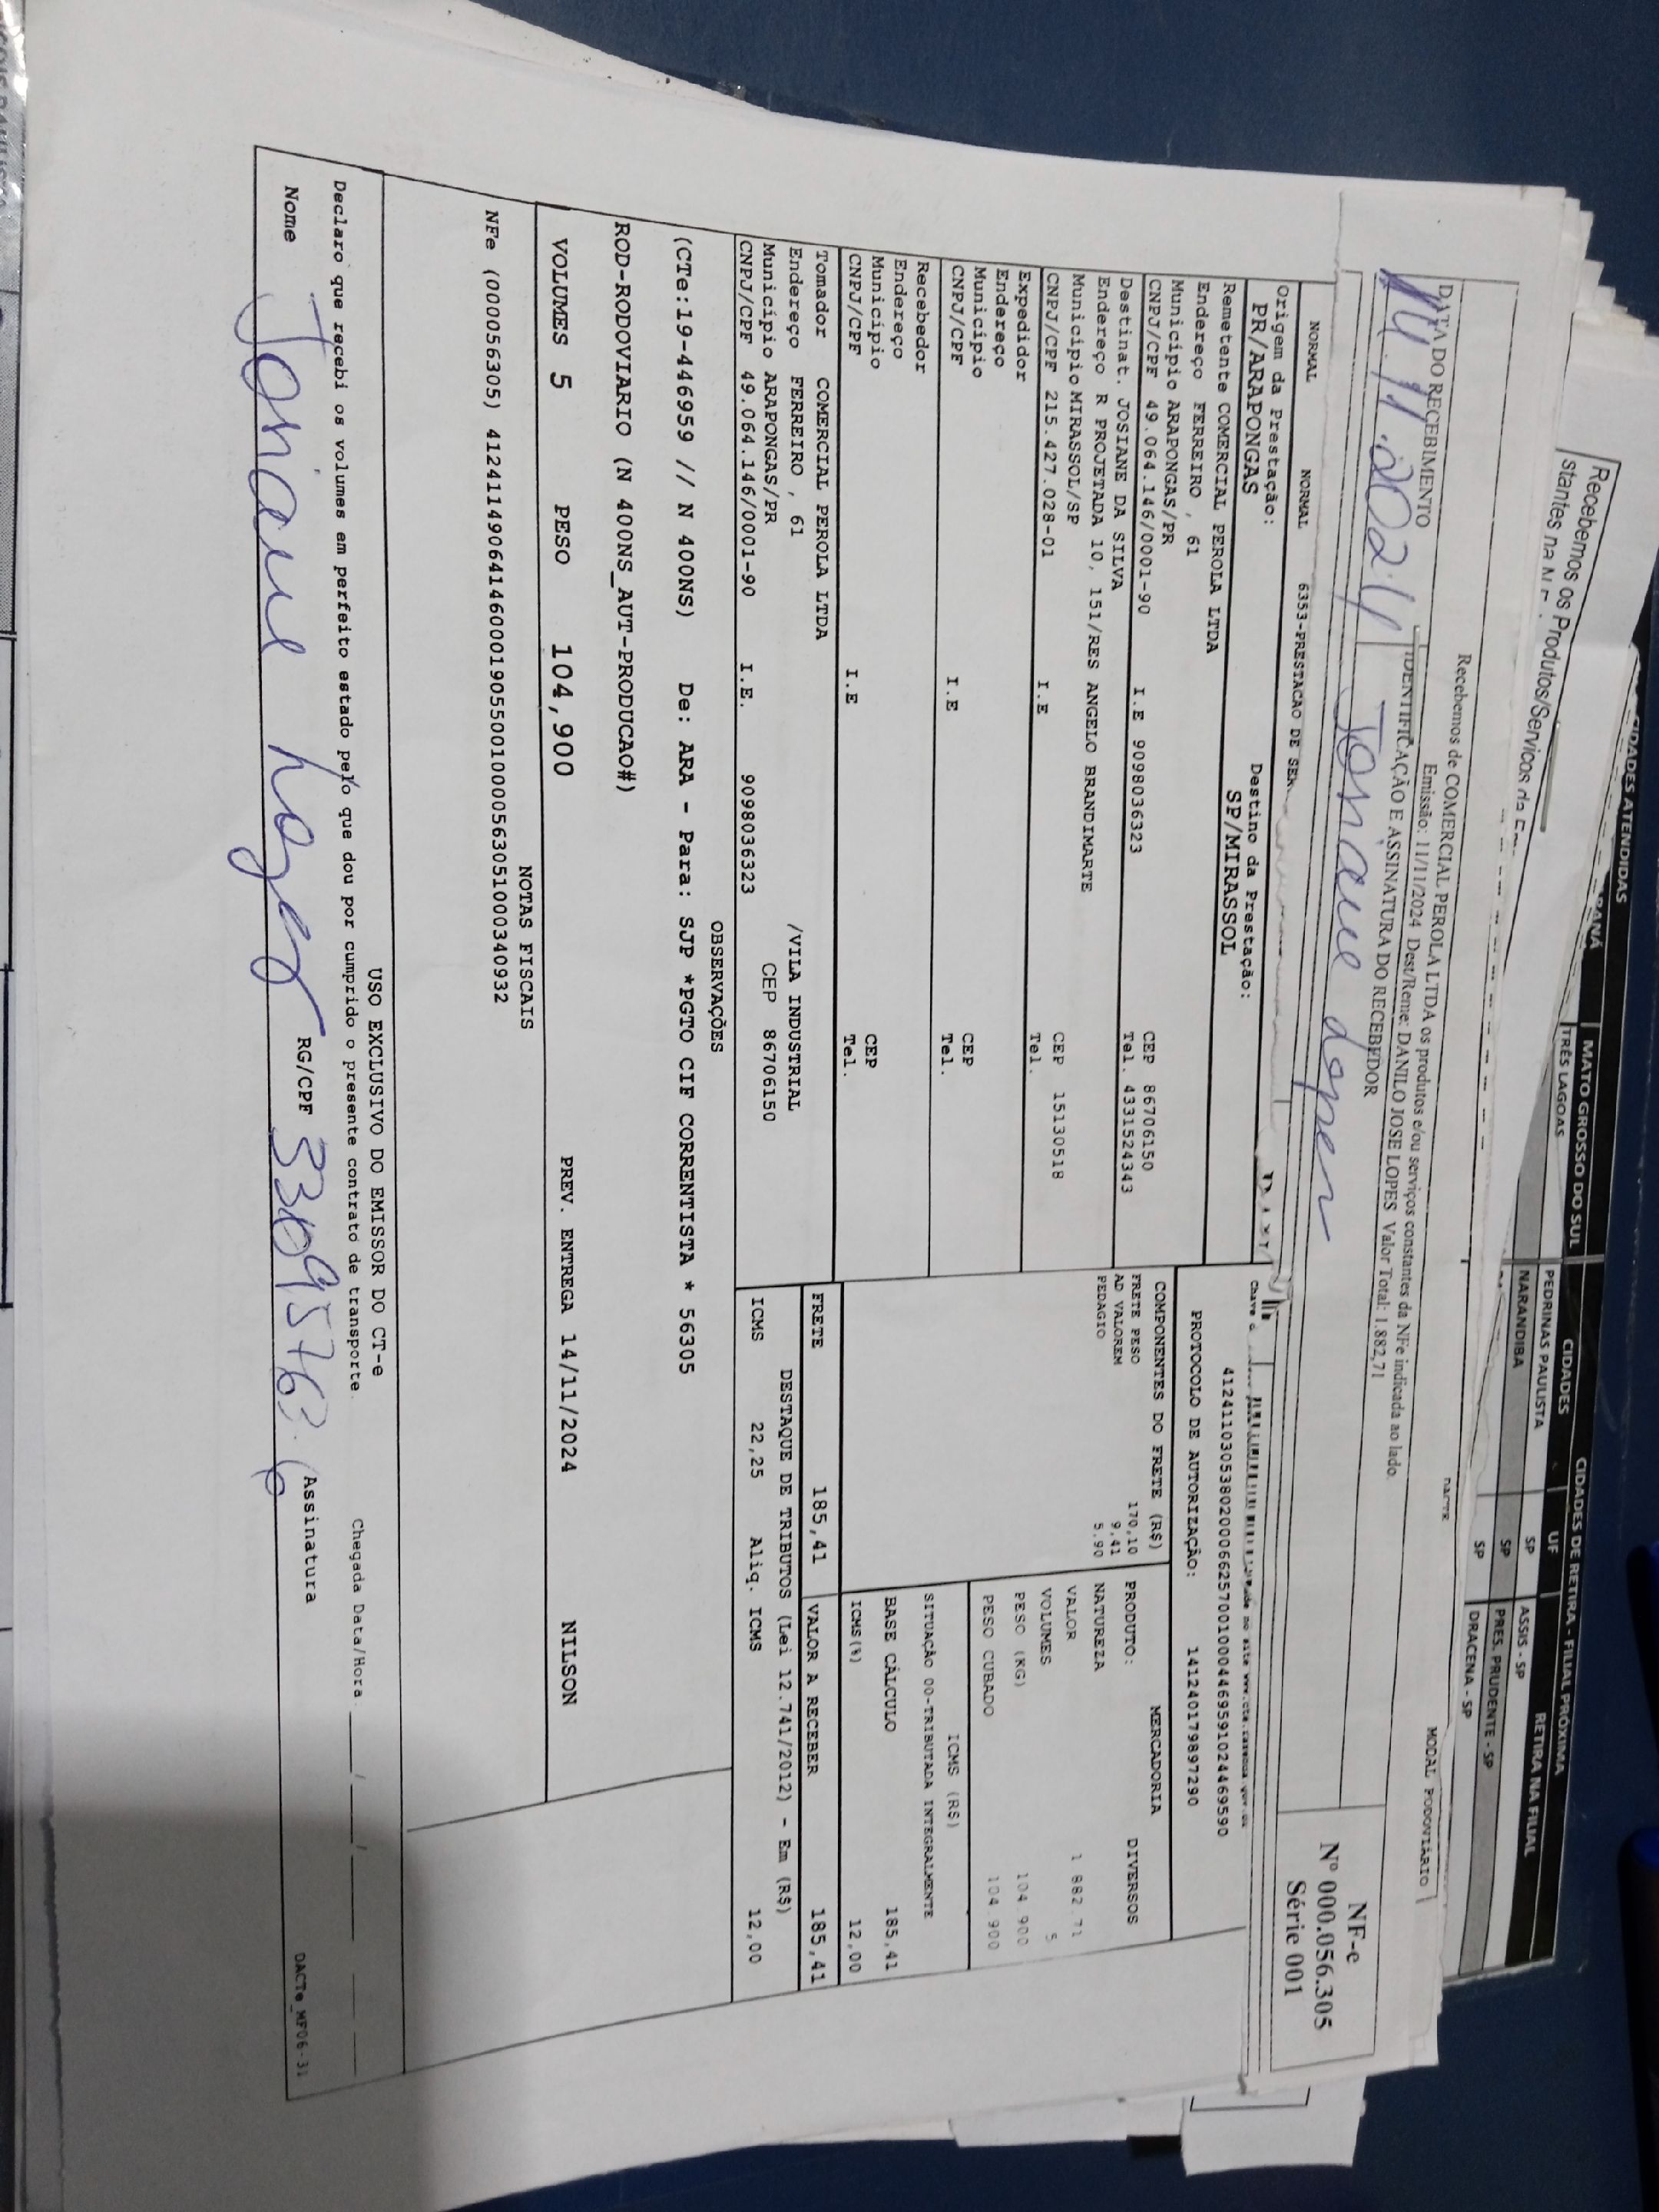 CIDADES ATENDIDAS
MATO GROSSO DO SUL
CIDADES DE RETIRA - FILIAL PRÓXIMA
TRÊS LAGOAS
CIDADES
UF
RETIRA NA FILIAL
PEDRINAS PAULISTA
SP
ASSIS - SP
NARANDIBA
SP
PRES. PRUDENTE - SP
SP
DRACENA - SP
Recebemos os Produtos/Serviços da
stantes na
Recebemos de COMERCIAL PEROLA LTDA os produtos e/ou serviços constantes da NFe indicada ao lado.
Emissão: 11/11/2024 Dest/Reme: DANILO JOSE LOPES Valor Total: 1.882,71
DATA DO RECEBIMENTO
IDENTIFICAÇÃO E ASSINATURA DO RECEBEDOR
NF-e
Nº 000.056.305
Série 001
MODAL RODOVIÁRIO
NORMAL NORMAL 6353-PRESTACAO DE
Origem da Prestação:
PR/ARAPONGAS
Destino da Prestação:
SP/MIRASSOL
41241103053802000662570010004469591024469590
PROTOCOLO DE AUTORIZAÇÃO: 141240179897290
Remetente COMERCIAL PEROLA LTDA
Endereço FERREIRO , 61
Município ARAPONGAS/PR CEP 86706150
CNPJ/CPF 49.064.146/0001-90 I.E 9098036323 Tel. 4331524343
Destinat. JOSIANE DA SILVA
Endereço R PROJETADA 10, 151/RES ANGELO BRANDIMARTE
Município MIRASSOL/SP CEP 15130518
CNPJ/CPF 215.427.028-01 I.E Tel.
Expedidor
Endereço
Município CEP
CNPJ/CPF I.E Tel.
Recebedor
Endereço
Município CEP
CNPJ/CPF I.E Tel.
Tomador COMERCIAL PEROLA LTDA
Endereço FERREIRO , 61 /VILA INDUSTRIAL
Município ARAPONGAS/PR CEP 86706150
CNPJ/CPF 49.064.146/0001-90 I.E. 9098036323
COMPONENTES DO FRETE (R$)
FRETE PESO 170,10
AD VALOREM 9,41
PEDAGIO 5,90
MERCADORIA
PRODUTO: DIVERSOS
NATUREZA
VALOR 1 882.71
VOLUMES 5
PESO (KG) 104.900
PESO CUBADO 104.900
ICMS (R$)
SITUAÇÃO 00-TRIBUTADA INTEGRALMENTE
BASE CÁLCULO 185,41
ICMS(%) 12,00
FRETE 185,41 VALOR A RECEBER 185,41
DESTAQUE DE TRIBUTOS (Lei 12.741/2012) - Em (R$)
ICMS 22,25 Aliq. ICMS 12,00
OBSERVAÇÕES
(CTe:19-446959 // N 400NS) De: ARA - Para: SJP *PGTO CIF CORRENTISTA * 56305
ROD-RODOVIARIO (N 400NS_AUT-PRODUCAO#)
VOLUMES 5 PESO 104,900 PREV. ENTREGA 14/11/2024 NILSON
NOTAS FISCAIS
NFe (000056305) 41241149064146000190550010000563051000340932
USO EXCLUSIVO DO EMISSOR DO CT-e
Declaro que recebi os volumes em perfeito estado pelo que dou por cumprido o presente contrato de transporte. Chegada Data/Hora
Nome RG/CPF Assinatura
DACTe_MF06-31